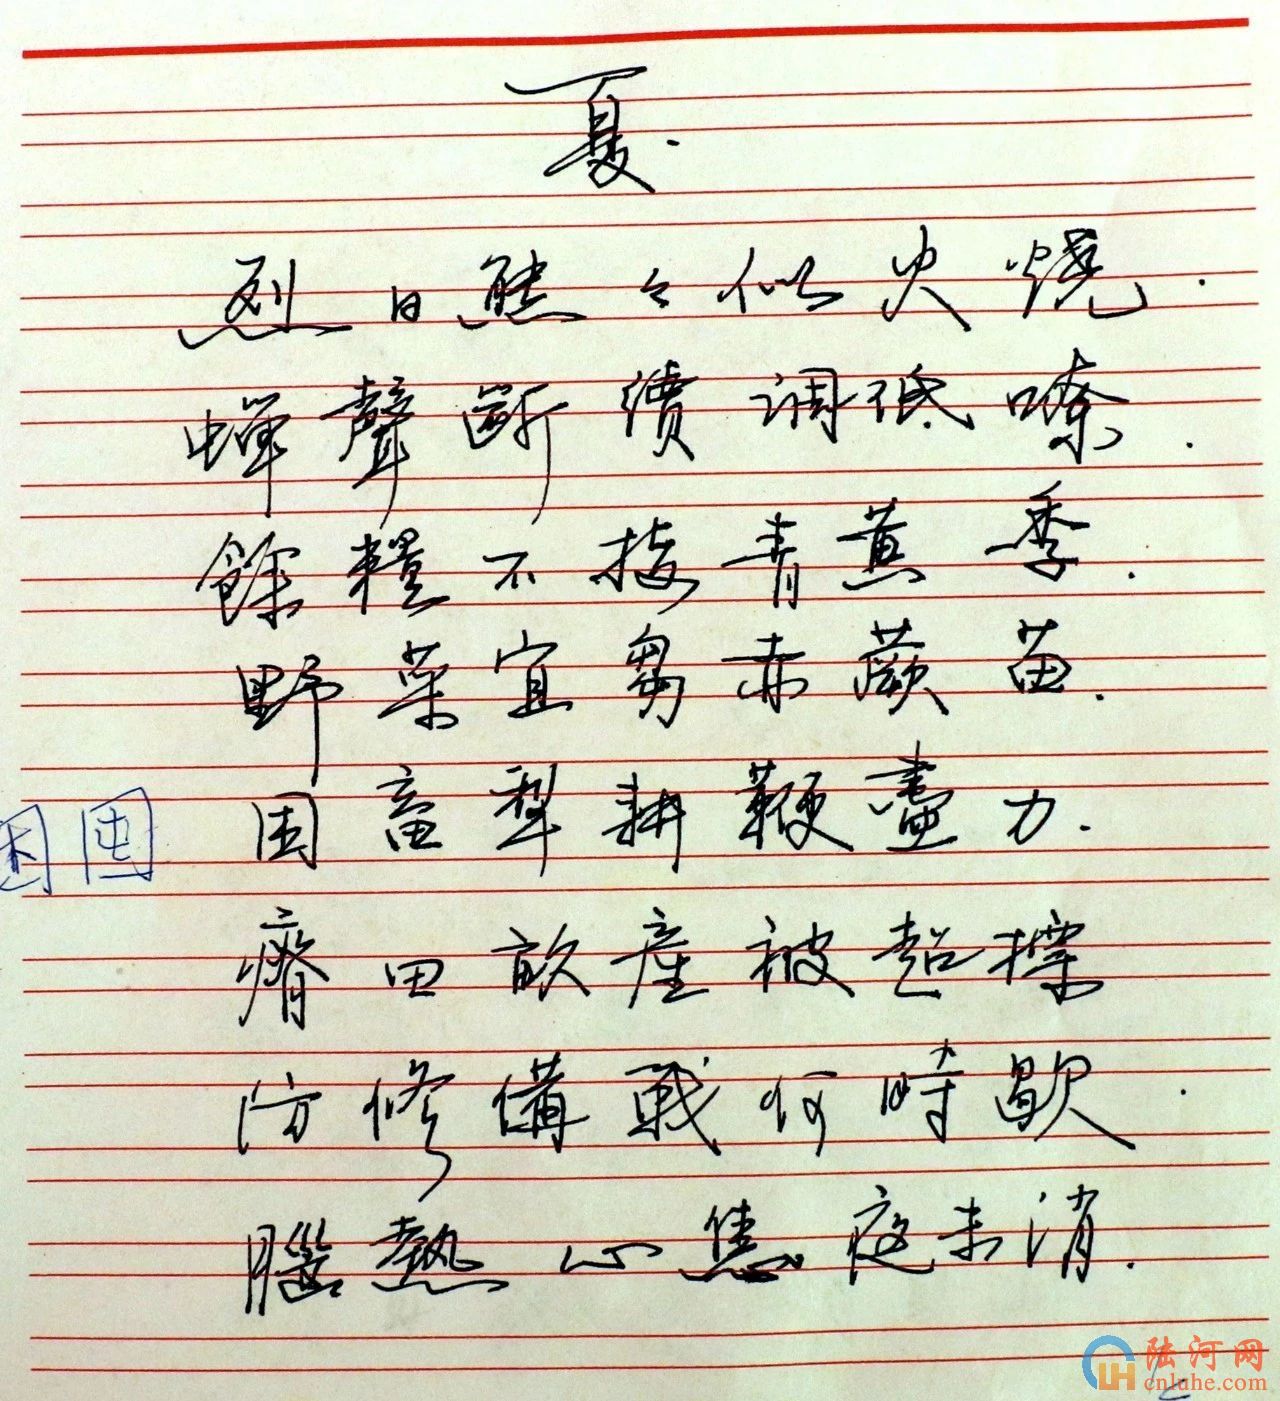 夏.
烈日熊々似火烧.
蟬聲斷續调低嘹.
餘糧不接青黄季.
野菜宜芻赤蕨苗.
困
困畜犁耕鞭盡力.
瘠田畝產被超標
防修備戰何時歇.
腦熱心焦夜未消.
陆河网
cnluhe.com